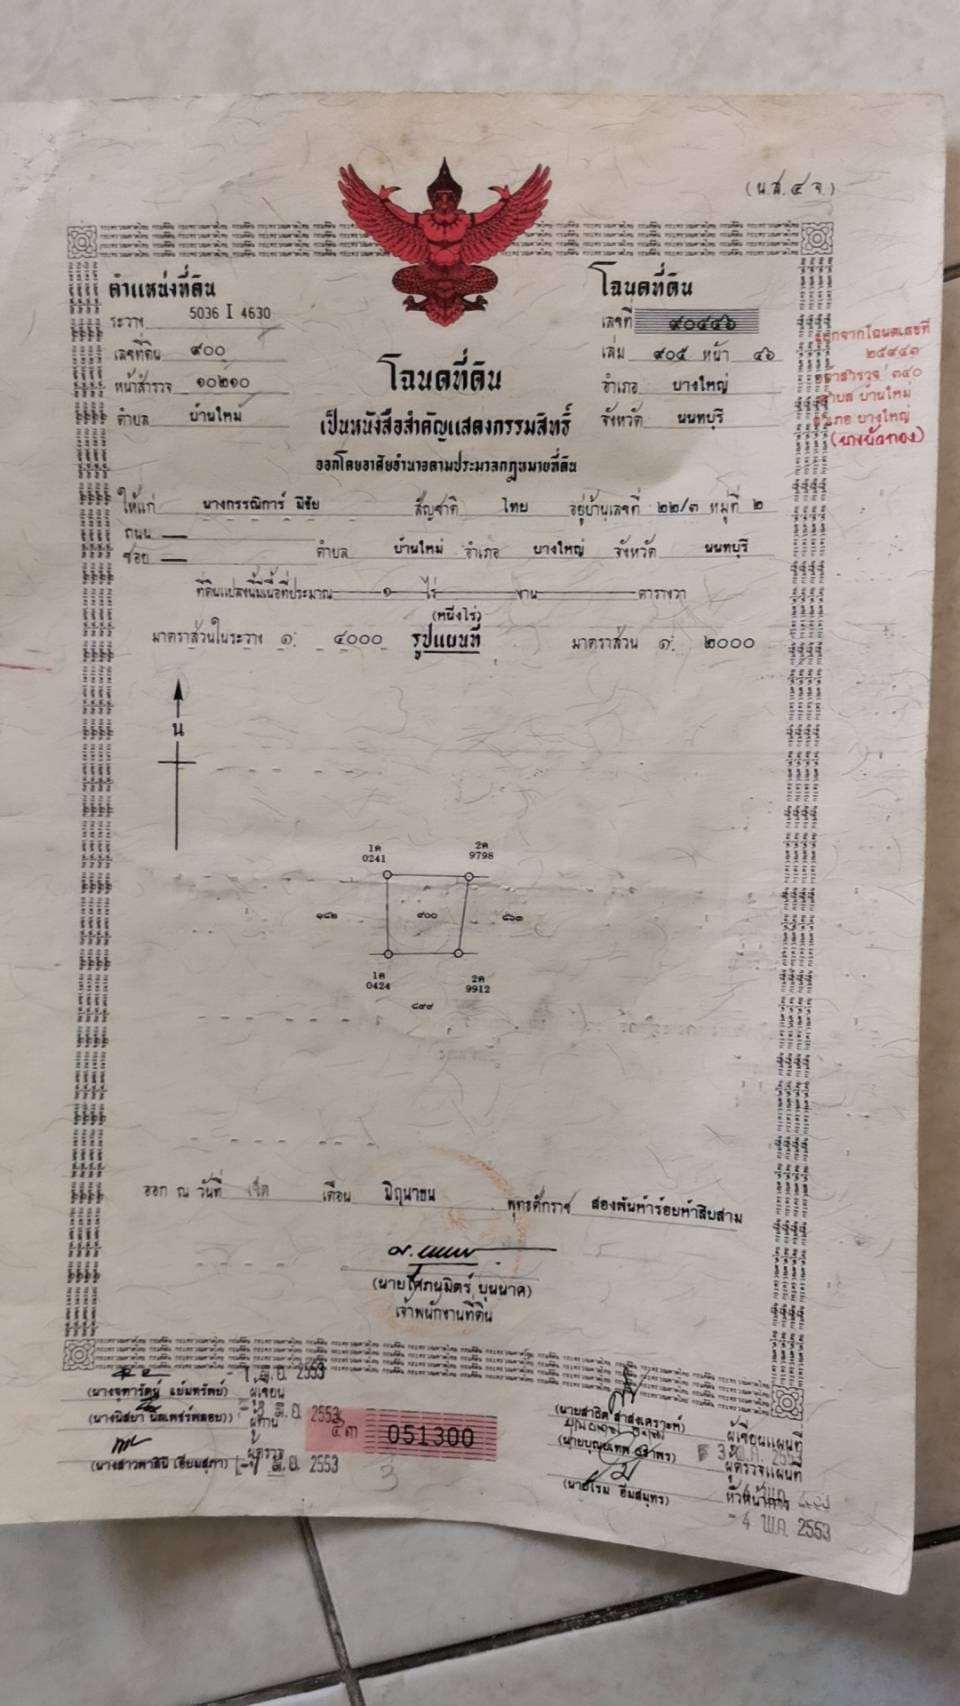 (น.ส.๔ จ.)
ตำแหน่งที่ดิน
ระวาง 5036 I 4630
เลขที่ดิน ๙๐๐
หน้าสำรวจ ๑๐๒๑๐
ตำบล บ้านใหม่
โฉนดที่ดิน
เลขที่ ๙๐๔๔๖
เล่ม ๙๐๕ หน้า ๔๖
อำเภอ บางใหญ่
จังหวัด นนทบุรี
ออกจากโฉนดเลขที่
๒๕๙๔๑
หน้าสำรวจ ๓๔๐
ตำบล บ้านใหม่
อำเภอ บางใหญ่
โฉนดที่ดิน
เป็นหนังสือสำคัญแสดงกรรมสิทธิ์
ออกโดยอาศัยอำนาจตามประมวลกฎหมายที่ดิน
ให้แก่ นางกรรณิการ์ มีชัย สัญชาติ ไทย อยู่บ้านเลขที่ ๒๒/๓ หมู่ที่ ๒
ถนน —
ซอย — ตำบล บ้านใหม่ อำเภอ บางใหญ่ จังหวัด นนทบุรี
ที่ดินแปลงนี้มีเนื้อที่ประมาณ ๑ ไร่ งาน ตารางวา
(หนึ่งไร่)
มาตราส่วนในระวาง ๑: ๔๐๐๐ รูปแผนที่ มาตราส่วน ๑: ๒๐๐๐
น
1ค 2ค
0241 9798
๑๔๒ ๙๐๐ ๘๖๓
1ค 2ค
0424 9912
๘๙๙
ออก ณ วันที่ เจ็ด เดือน มิถุนายน พุทธศักราช สองพันห้าร้อยห้าสิบสาม
(นายโศภนมิตร์ บุนนาค)
เจ้าพนักงานที่ดิน
มิ.ย. 2553
(นางจุฑารัตน์ แย้มทรัพย์) ผู้เขียน
มิ.ย. 2553
ผู้ทาน
ผู้ตรวจ
มิ.ย. 2553
051300
ผู้เขียนแผนที่
พ.ค. 2553
ผู้ตรวจแผนที่
(นายโรม อิ่มสมุทร) หัวหน้าการ
- 4 พ.ค. 2553